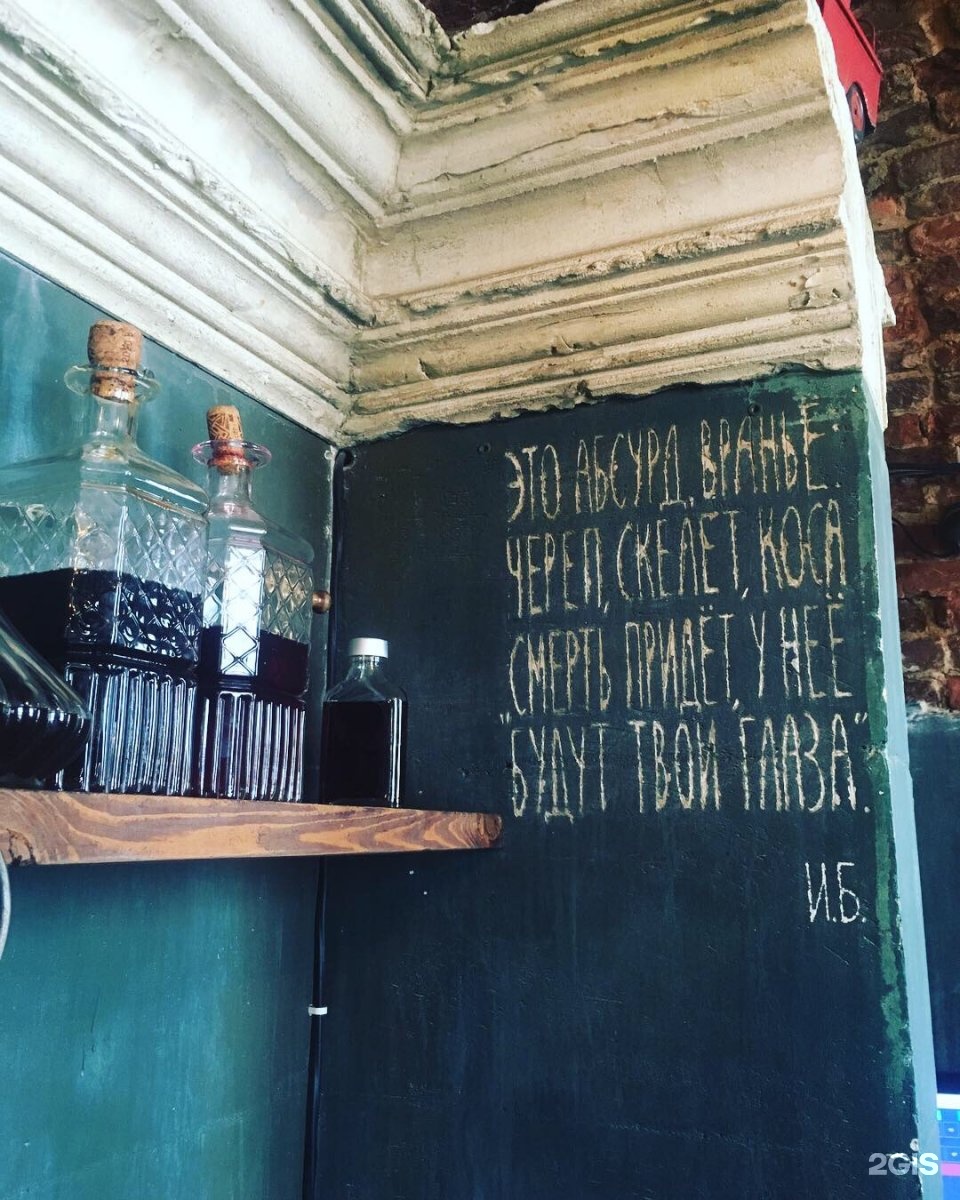 ЭТО АБСУРД, ВРАНЬЁ:
ЧЕРЕП, СКЕЛЕТ, КОСА
СМЕРТЬ ПРИДЁТ, У НЕЁ
"БУДУТ ТВОИ ГЛАЗА".
И.Б.
2GIS